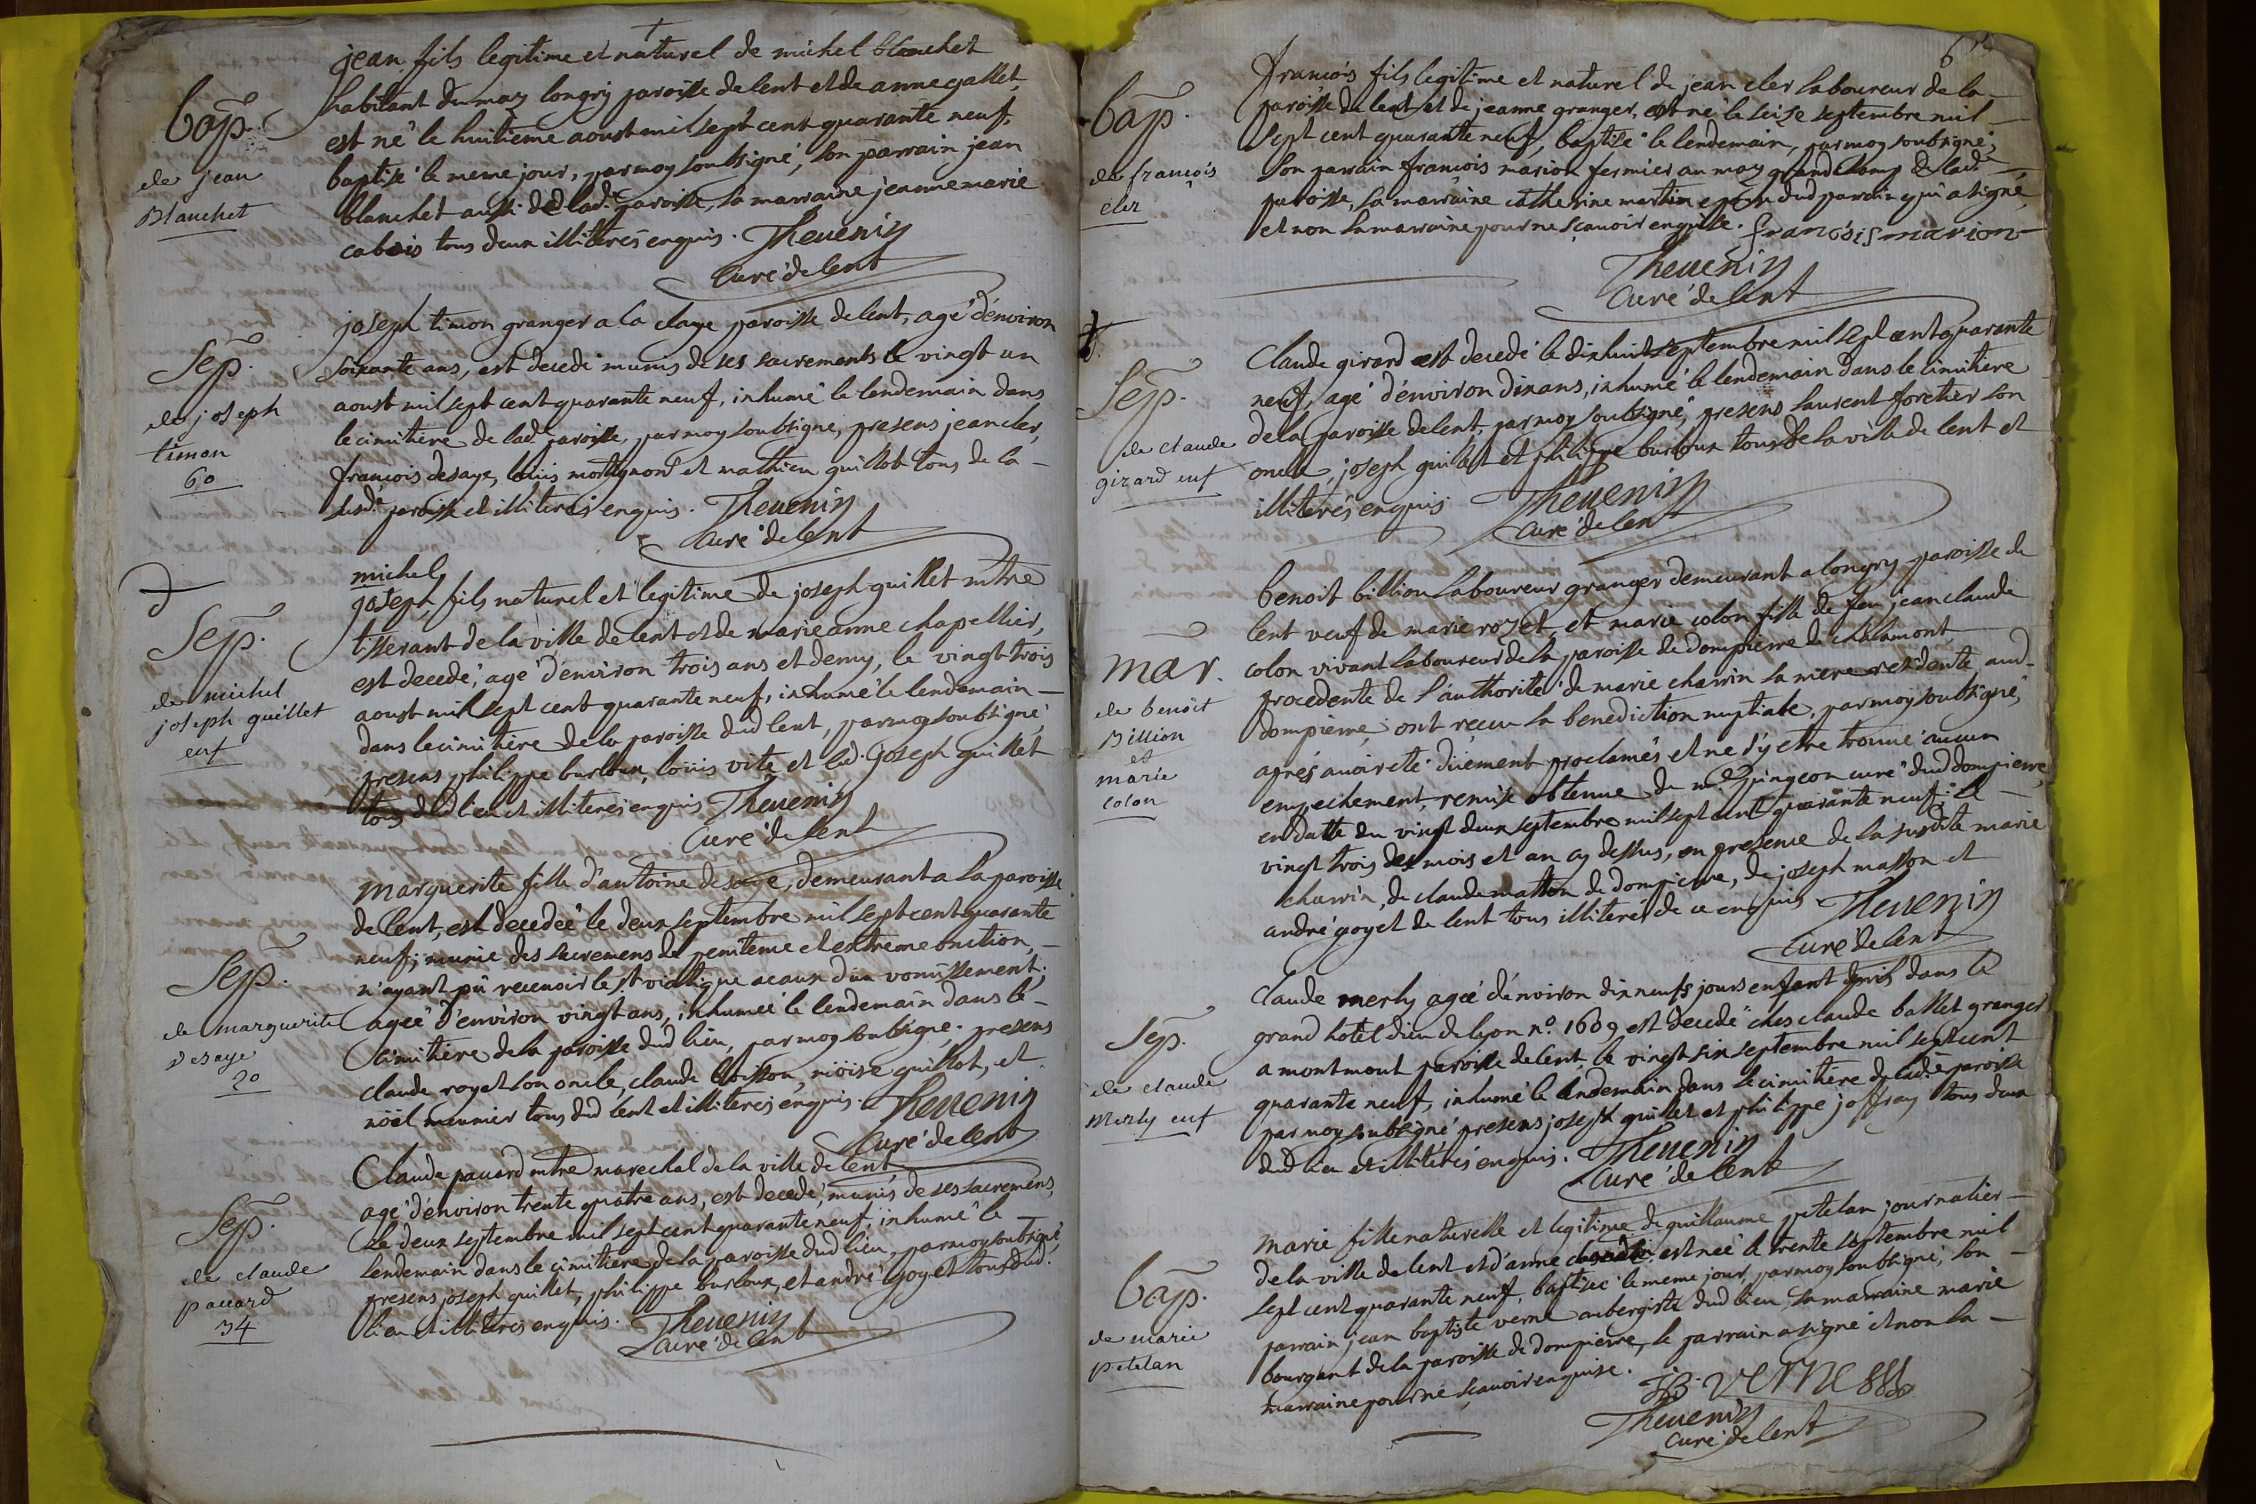 jean fils legitime et naturel de michel blanchet
habitant du may longry paroisse de lent et de anne gallet,
est né le huitieme aoust mil sept cent quarante neuf,
baptisé le meme jour, par moy soubsigné, son parrain jean
blanchet aussi de lad.e paroisse, sa marraine jeanne marie
cabois tous deux illiterés enquis. Thevenin
curé de lent
bap.
de jean
Blanchet
joseph timon granger a la claye paroisse de lent, agé d'environ
soixante ans, est decedé munis de ses sacrements le vingt un
aoust mil sept cent quarante neuf, inhumé le lendemain dans
le cimitiere de lad.e paroisse, par moy soubsigné, presens jean cler,
françois desaye, louis montagnond et mathieu guillot tous de la
susd.e paroisse et illiterés enquis. Thevenin
curé de lent
Sep.
de joseph
timon
60
michel
joseph, fils naturel et legitime de joseph guillet mtre
tisserant de la ville de lent et de marie anne chapellier,
est decedé, agé d'environ trois ans et demy, le vingt trois
aoust mil sept cent quarante neuf, inhumé le lendemain
dans le cimitiere de la paroisse dud lent, par moy soubsigné
presens philippe burloux, loüis vite et led. joseph guillet
tous dud lieu et illiterés enquis Thevenin
curé de lent
Sep.
de michel
joseph guillet
enf
marguerite fille d'antoine desaye, demeurant a la paroisse
de lent, est decedée le deux septembre mil sept cent quarante
neuf, munie des sacremens de penitence et extreme onction,
n'ayant pû recevoir le st viatique a caus d'un vomissement,
agée d'environ vingt ans, inhumée le lendemain dans le
cimitiere de la paroisse dud lieu, par moy soubsigné, presens
claude royat son oncle, claude boisson, möise guillot, et
nöel meunier tous dud lent et illiterés enquis. Thevenin
curé de lent
Sep.
de marguerite
Desaye
20
Claude pauard mtre marechal de la ville de lent
agé d'environ trente quatre ans, est decedé, munis de ses sacremens,
le deux septembre mil sept cent quarante neuf, inhumé le
lendemain dans le cimitiere de la paroisse dud lieu, par moy soubsigné,
presens joseph guillet, philippe burloux, et andré goyet tous dud.
lieu et illiterés enquis. Thevenin
curé de lent
Sep.
de claude
pauard
34
françois fils legitime et naturel de jean cler laboureur de la
paroisse de lent et de jeanne granger, est né le seize septembre mil
sept cent quarante neuf, baptisé le lendemain, par moy soubsigné,
son parrain françois marion fermier au may grand champ de lad.e
paroisse, sa marraine catherine martin epouse dud parrain qui a signé
et non la marraine pour ne sçavoir enquise. françois marion
Thevenin
curé de lent
bap.
de françois
cler
Claude girard est decedé le dixhuit septembre mil sept cent quarante
neuf, agé d'environ dix ans, inhumé le lendemain dans le cimitiere
de la paroisse de lent, par moy soubsigné, presens laurent foretier son
oncle, joseph guillet et philippe burloux tous de la ville de lent et
illiterés enquis Thevenin
curé de lent
Sep.
de claude
girard enf
benoit billion laboureur granger demeurant a longry paroisse de
lent veuf de marie rozet, et marie colon fille de feu jean claude
colon vivant laboureur de la paroisse de dompierre de chalamont
procedente de l'authorité de marie charrin sa mere residente aud.
dompierre, ont receu la benediction nuptiale, par moy soubsigné,
aprés avoir eté düement proclamés et ne s'y etre trouvé aucun
empechement, remise obtenue de mr. Guingeon curé dud dompierre,
en datte du vingt deux septembre mil sept cent quarante neuf, le
vingt trois des mois et an cy dessus, en presence de la susdite marie
charrin, de claude matton de dompierre, de joseph masson et
andré goyet de lent tous illiterés de ce enquis Thevenin
curé de lent
mar.
de benôit
Billion
et
marie
colon
Claude merly agée d'environ dix neufs jours enfant pris dans le
grand hotel dieu de lyon n.o 1609 est decedé ches claude ballet granger
a montmont paroisse de lent, le vingt six septembre mil sept cent
quarante neuf, inhumé le lendemain dans le cimitiere de lad.e paroisse
par moy soubsigné presens joseph guillet et philippe joffray tous deux
dud lieu et illiterés enquis. Thevenin
curé de lent
Sep.
de claude
Merly enf
marie fille naturelle et legitime de guillaume petelan journalier
de la ville de lent et d'anne est née le trente septembre mil
sept cent quarante neuf, baptisée le meme jour, par moy soubsigné, son
parrain jean baptiste verne aubergiste dud lieu, sa marraine marie
bourgunt de la paroisse de dompierre, le parrain a signé et non la
marraine pour ne sçavoir enquise. JB. verne
Thevenin
curé de lent
bap.
de marie
petelan